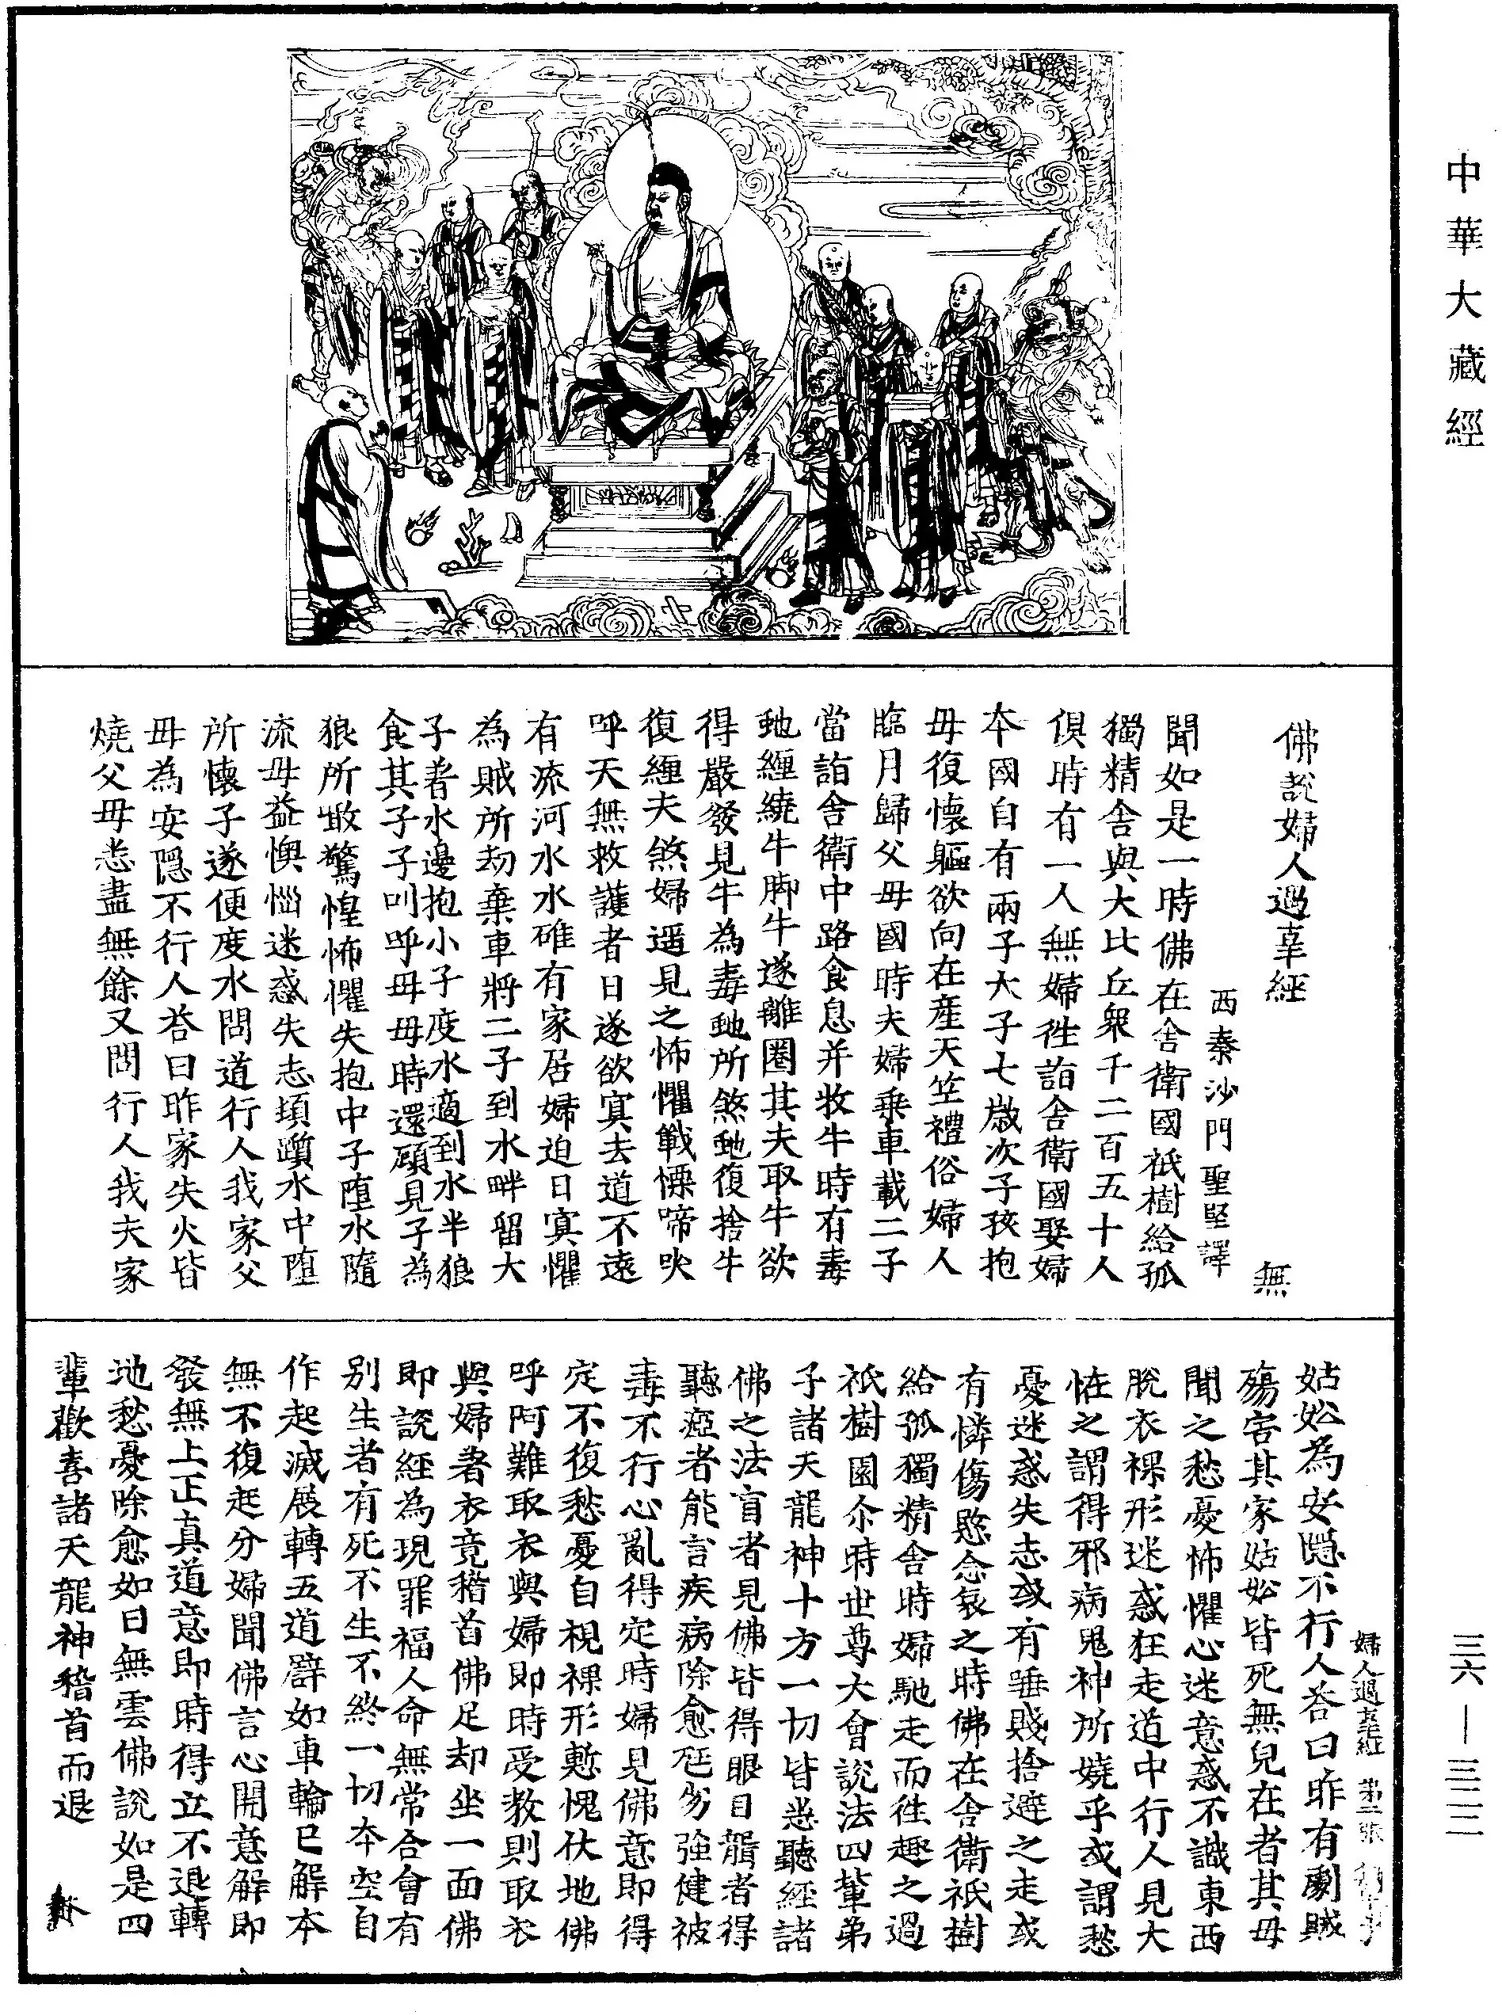 中華大藏經
佛說婦人遇辜經
無
西秦沙門聖堅譯
聞如是一時佛在舍衛國祇樹給孤
獨精舍與大比丘眾千二百五十人
俱時有一人無婦徃詣舍衛國娶婦
本國自有兩子大子七歲次子孩抱
母復懷軀欲向在產天竺禮俗婦人
臨月歸父母國時夫婦乗車載二子
當詣舍衛中路食息并牧牛時有毒
虵纏繞牛脚牛遂離圈其夫取牛欲
得嚴發見牛為毒虵所煞虵復捨牛
復纏夫煞婦遥見之怖懼戰慄啼哭
呼天無救護者日遂欲㝠去道不遠
有流河水水碓有家居婦迫日㝠懼
為賊所劫棄車將二子到水畔留大
子著水邊抱小子度水適到水半狼
食其子子叫呼母母時還顧見子為
狼所噉驚惶怖懼失抱中子墮水隨
流母益懊惱迷惑失志頓躓水中墮
所懷子遂便度水問道行人我家父
母為安隱不行人荅曰昨家失火皆
燒父母悉盡無餘又問行人我夫家
姑妐為安隱不行人荅曰昨有劇賊
殤害其家姑妐皆死無兒在者其母
聞之愁憂怖懼心迷意惑不識東西
脫衣裸形迷惑狂走道中行人見大
恠之謂得邪病鬼神所嬈乎或謂愁
憂迷惑失志或有唾賤捨避之走或
有憐傷愍念哀之時佛在舍衛祇樹
給孤獨精舍時婦馳走而徃趣之過
祇樹園尒時世尊大會說法四輩弟
子諸天龍神十方一切皆悉聽經諸
佛之法盲者見佛皆得眼目聾者得
聽瘂者能言疾病除愈尫劣強健被
毒不行心亂得定時婦見佛意即得
定不復愁憂自視裸形慙愧伏地佛
呼阿難取衣與婦即時受教則取衣
與婦著衣竟稽首佛足却坐一面佛
即說經為現罪福人命無常合會有
別生者有死不生不終一切本空自
作起滅展轉五道譬如車輪已解本
無不復起分婦聞佛言心開意解即
發無上正真道意即時得立不退轉
地愁憂除愈如日無雲佛說如是四
輩歡喜諸天龍神稽首而退
婦人遇辜經 第二張
三六—三二二